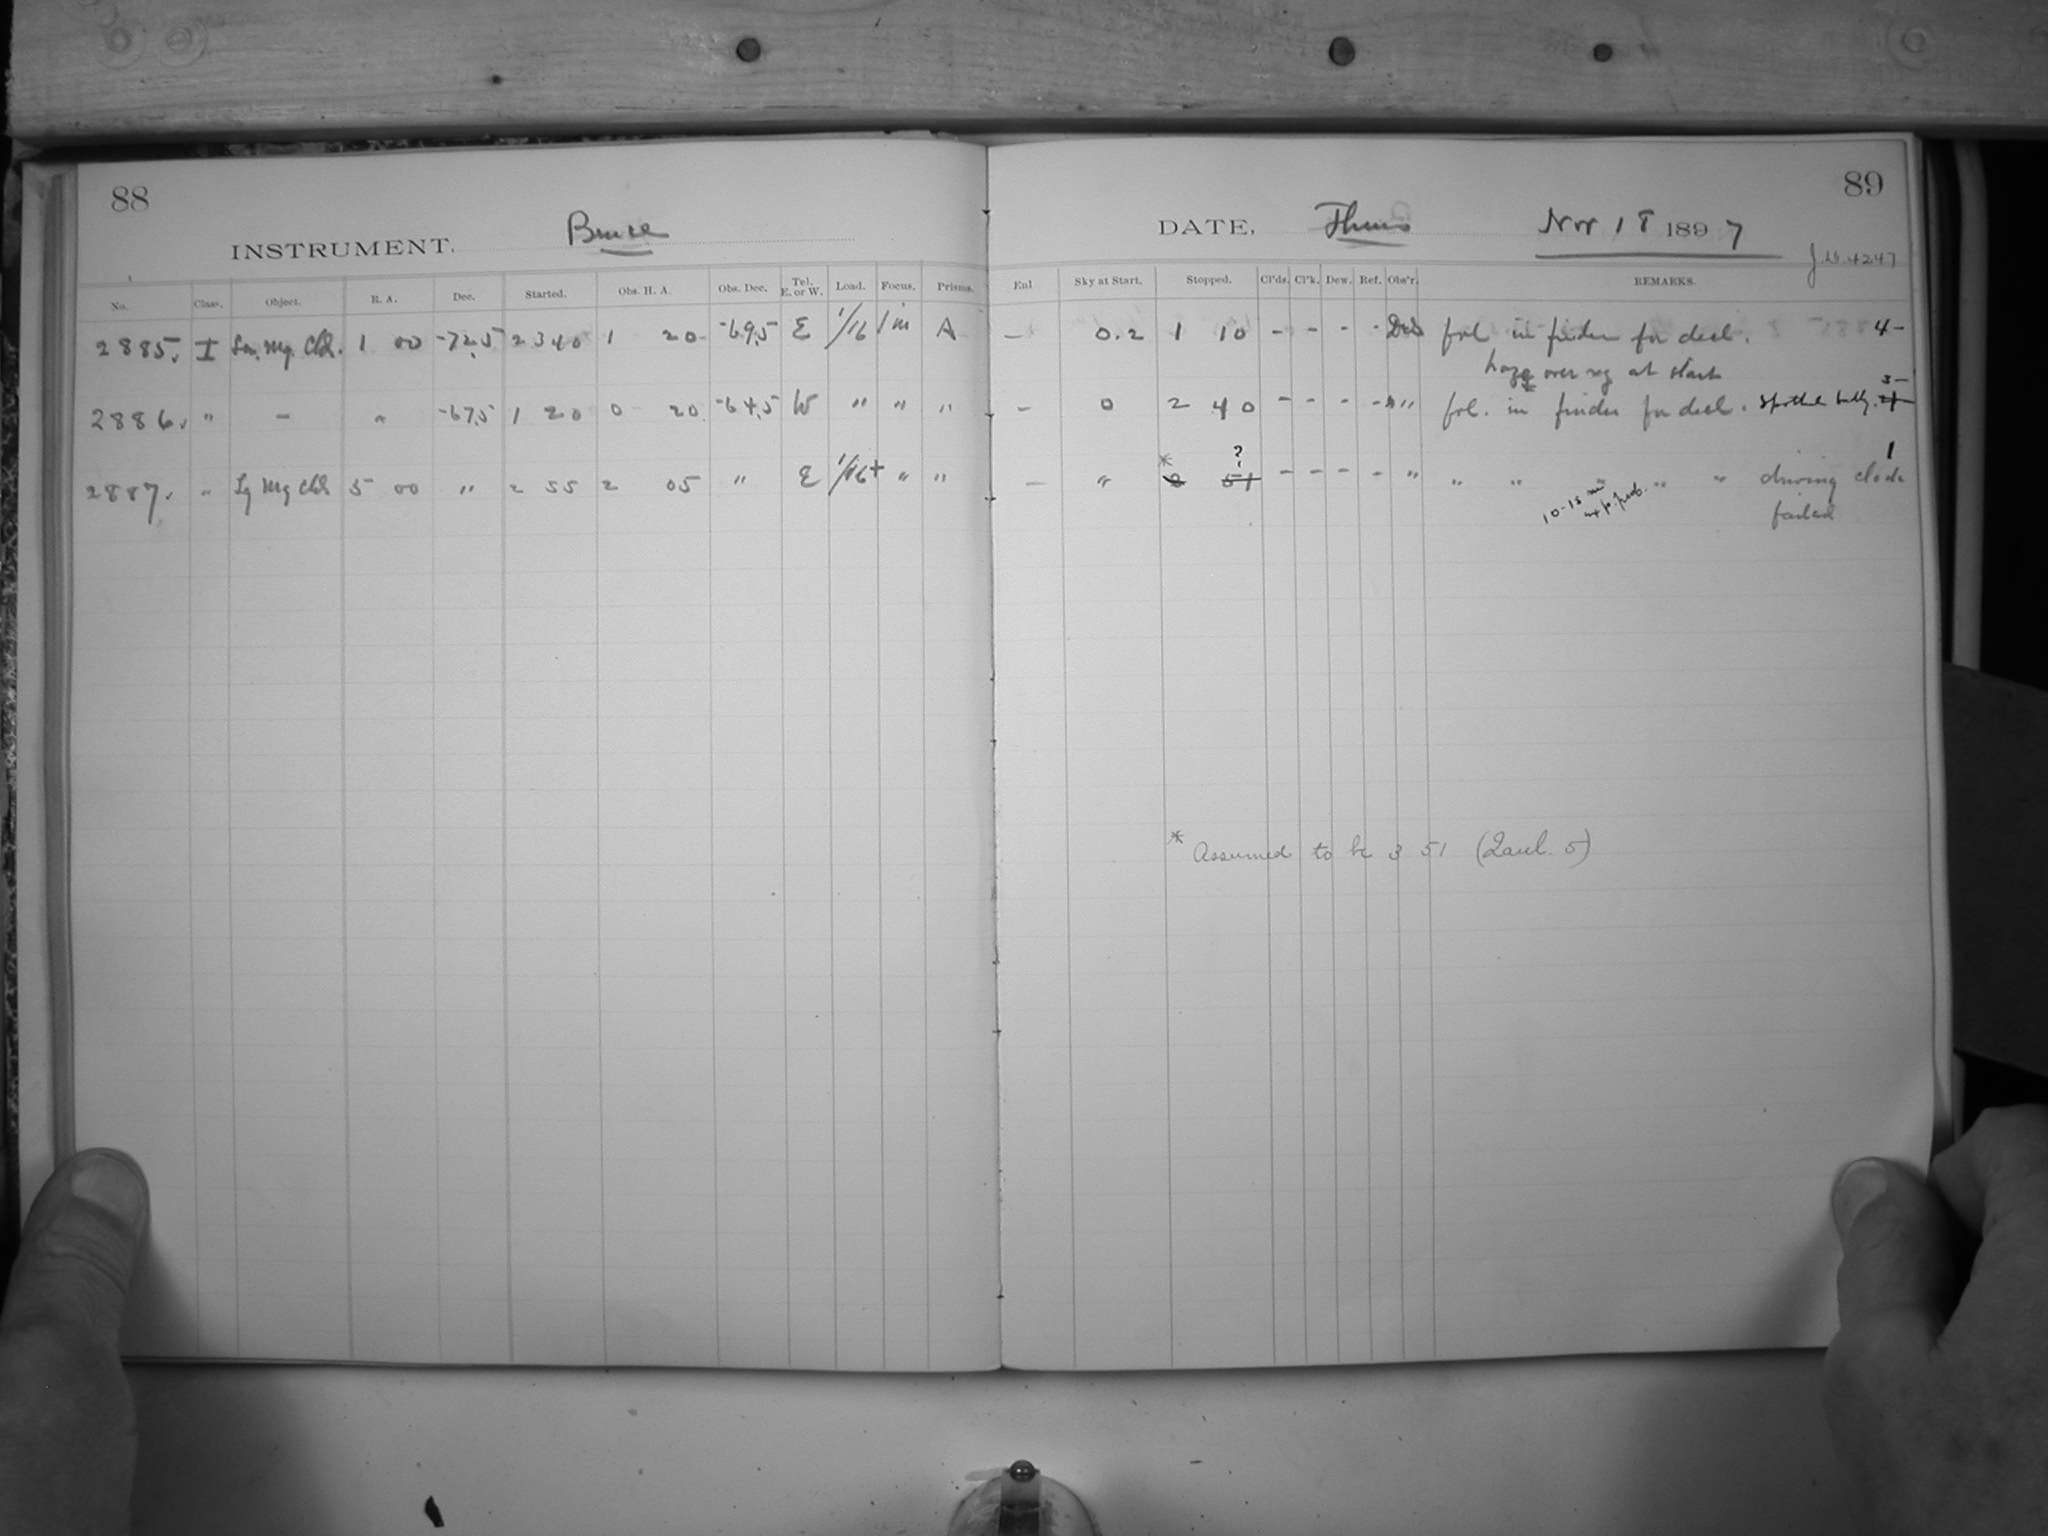 88
INSTRUMENT. Bruce
No. Class. Object. R. A. Dec. Started. Obs. H. A. Obs. Dec. Tel. E. or W. Load. Focus. Prisms.
2885. I Sm. Mg. Cld. 1 00 -72.5 23 40 1 20 -69.5 E 1/16 1 in A
2886. " - " -67.5 1 20 0 20 -64.5 W " " "
2887. " Lg Mg Cld 5 00 " 2 55 2 05 " E 1/16+ " "
89
DATE, Thurs Nov 18 1897
J.D. 4247
Enl Sky at Start. Stopped. Cl'ds. Cl'k. Dew. Ref. Obs'r. REMARKS.
- 0.2 1 10 - - - - fol. in finder for decl. 4-
haze over reg at start
- 0 2 40 - - - - " fol. in finder for decl. Spotted 3-
- " * ? 51 - - - - " " " " " " driving clock 1
failed
10-15 m exp. prob.
* Assumed to be 3 51 (Taul. 5)